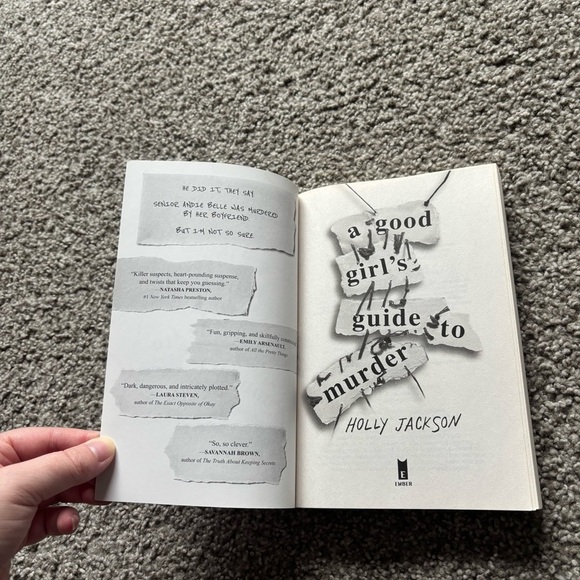 HE DID IT, THEY SAY
SENIOR ANDIE BELLE WAS MURDERED
BY HER BOYFRIEND
BUT I'M NOT SO SURE
"Killer suspects, heart-pounding suspense,
and twists that keep you guessing."
—NATASHA PRESTON,
#1 New York Times bestselling author
"Fun, gripping, and skillfully
—EMILY ARSENAULT,
author of All the Pretty Things
"Dark, dangerous, and intricately plotted."
—LAURA STEVEN,
author of The Exact Opposite of Okay
"So, so clever."
—SAVANNAH BROWN,
author of The Truth About Keeping Secrets
a good
girl's
guide to
murder
HOLLY JACKSON
E
EMBER